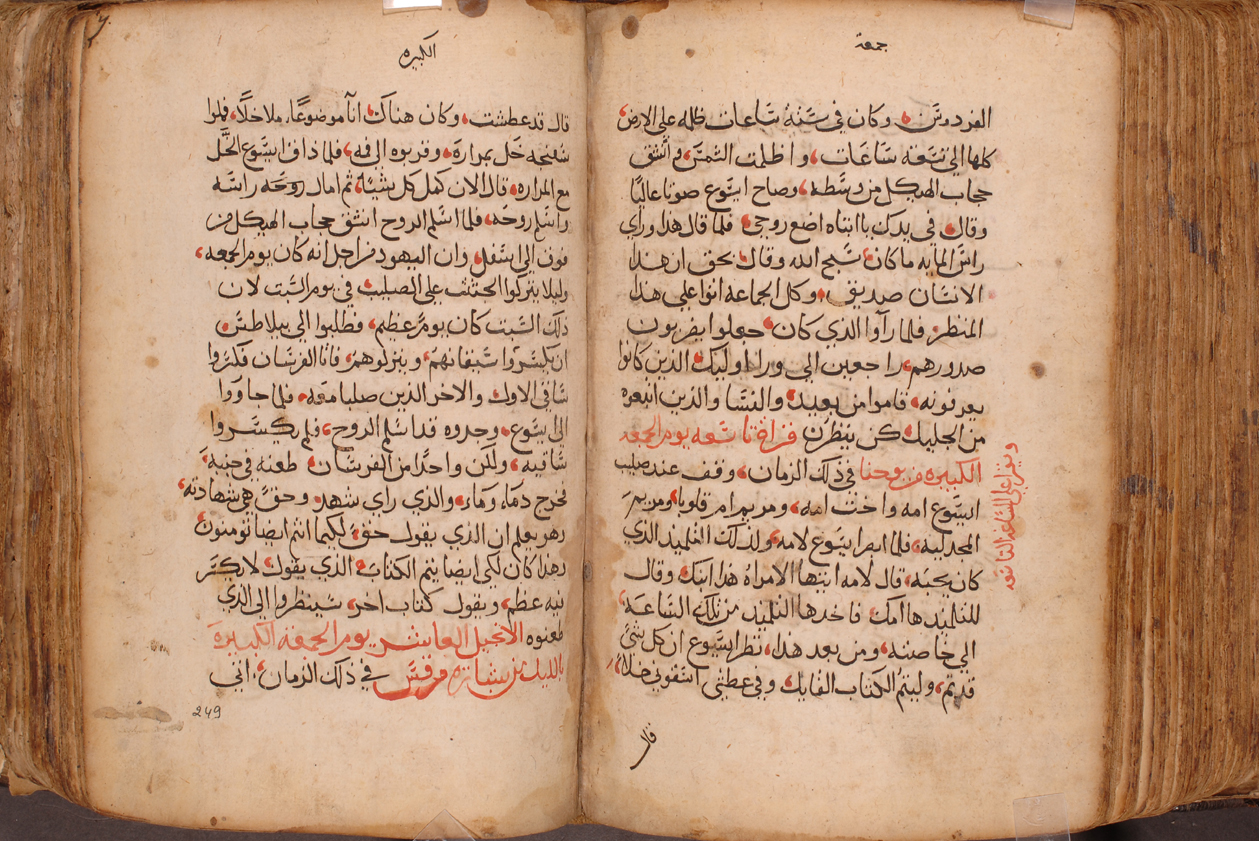 جمعة
الفردوس وكان في ستة ساعات ظلمه على الارض
كلها الى تسعه ساعات واظلمت الشمس وانشق
حجاب الهيكل من وسطه وصاح ايسوع صوتا عاليا
وقال في يدك يا ابتاه اضع روحي فلما قال هذا وراي
راس المايه ما كان سبح الله وقال بحق ان هذا
الانسان صديق وكل الجماعه اتوا على هذا
المنظر فلما رآوا الذي كان جعلوا يضربون
صدورهم راجعين الى ورا اوليك الذين كانوا
يعرفونه قاموا من بعيد والنسا والذين اتبعوه
من الجليل كن ينظرن قراة تاسعه يوم الجمعه
الكبيره من يوحنا في ذلك الزمان وقف عند صليب
ايسوع امه واخت امه ومريم ام قلوبا ومريم
المجدليه فلما ابصر ايسوع لامه ولذلك التلميذ الذي
كان يحبه قال لامه ايتها الامراه هذا ابنك وقال
للتلميذ ها امك فاخدها التلميذ من تلك الساعه
الى خاصته ومن بعد هذا نظر ايسوع ان كل شي
قد تم وليتم الكتاب القايل وفي عطشي اسقوني خلا
ويقرا على الساعه التاسعه
قال
الكبيره
قال قد عطشت وكان هناك انآ موضوعا ملا خلا فملوا
سفنجه خل بمراره وقربوه الى فيه فلما ذاق ايسوع الخل
مع المراره قال الان كمل كل شي ثم امال روحه راسه
واسلم روحه فلما اسلم الروح انشق حجاب الهيكل من
فوق الى اسفل وان اليهود من اجل انه كان يوم الجمعه
وليلا يتركوا الجثث على الصليب في يوم السبت لان
ذلك السبت كان يوم عظيم فطلبوا الى بيلاطس
ان يكسروا سيقانهم وينزلوهم فاتا الفرسان فكسروا
ساقي الاول والاخر الذين صلبا معه فلما جاووا
الى يسوع وجدوه قد اسلم الروح فلم يكسروا
ساقيه ولكن واحدا من الفرسان طعنه في جنبه
فخرج دما وماء والذي راي شهد وحق هي شهادته
وهو يعلم ان الذي يقول حق لكيما انتم ايضا تومنون
وهذا كان لكي ايضا يتم الكتاب الذي يقول لا يكسر
فيه عظم ويقول كتاب اخر سينظروا الى الذي
طعنوه الانجيل العاشر يوم الجمعه الكبيره
بالليل من بشارة مرقس في ذلك الزمان اتي
249